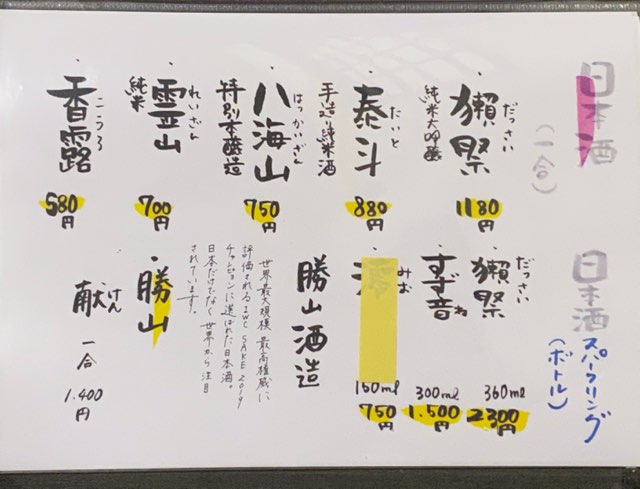 日本酒
(一合)
だっさい
獺祭
純米大吟醸
1180円
たいと
泰斗
手造り純米酒
880円
はっかいざん
八海山
特別本醸造
750円
れいざん
霊山
純米
700円
こうろ
香露
580円
日本酒
スパークリング
(ボトル)
だっさい
獺祭
360ml
2300円
すず音
ね
300ml
1.500円
みお
澪
150ml
750円
勝山酒造
世界最大規模 最高権威に
評価されるIWC SAKE 2019
チャンピオンに選ばれた日本酒。
日本だけでなく世界から注目
されています。
勝山
献
けん
一合
1.400円